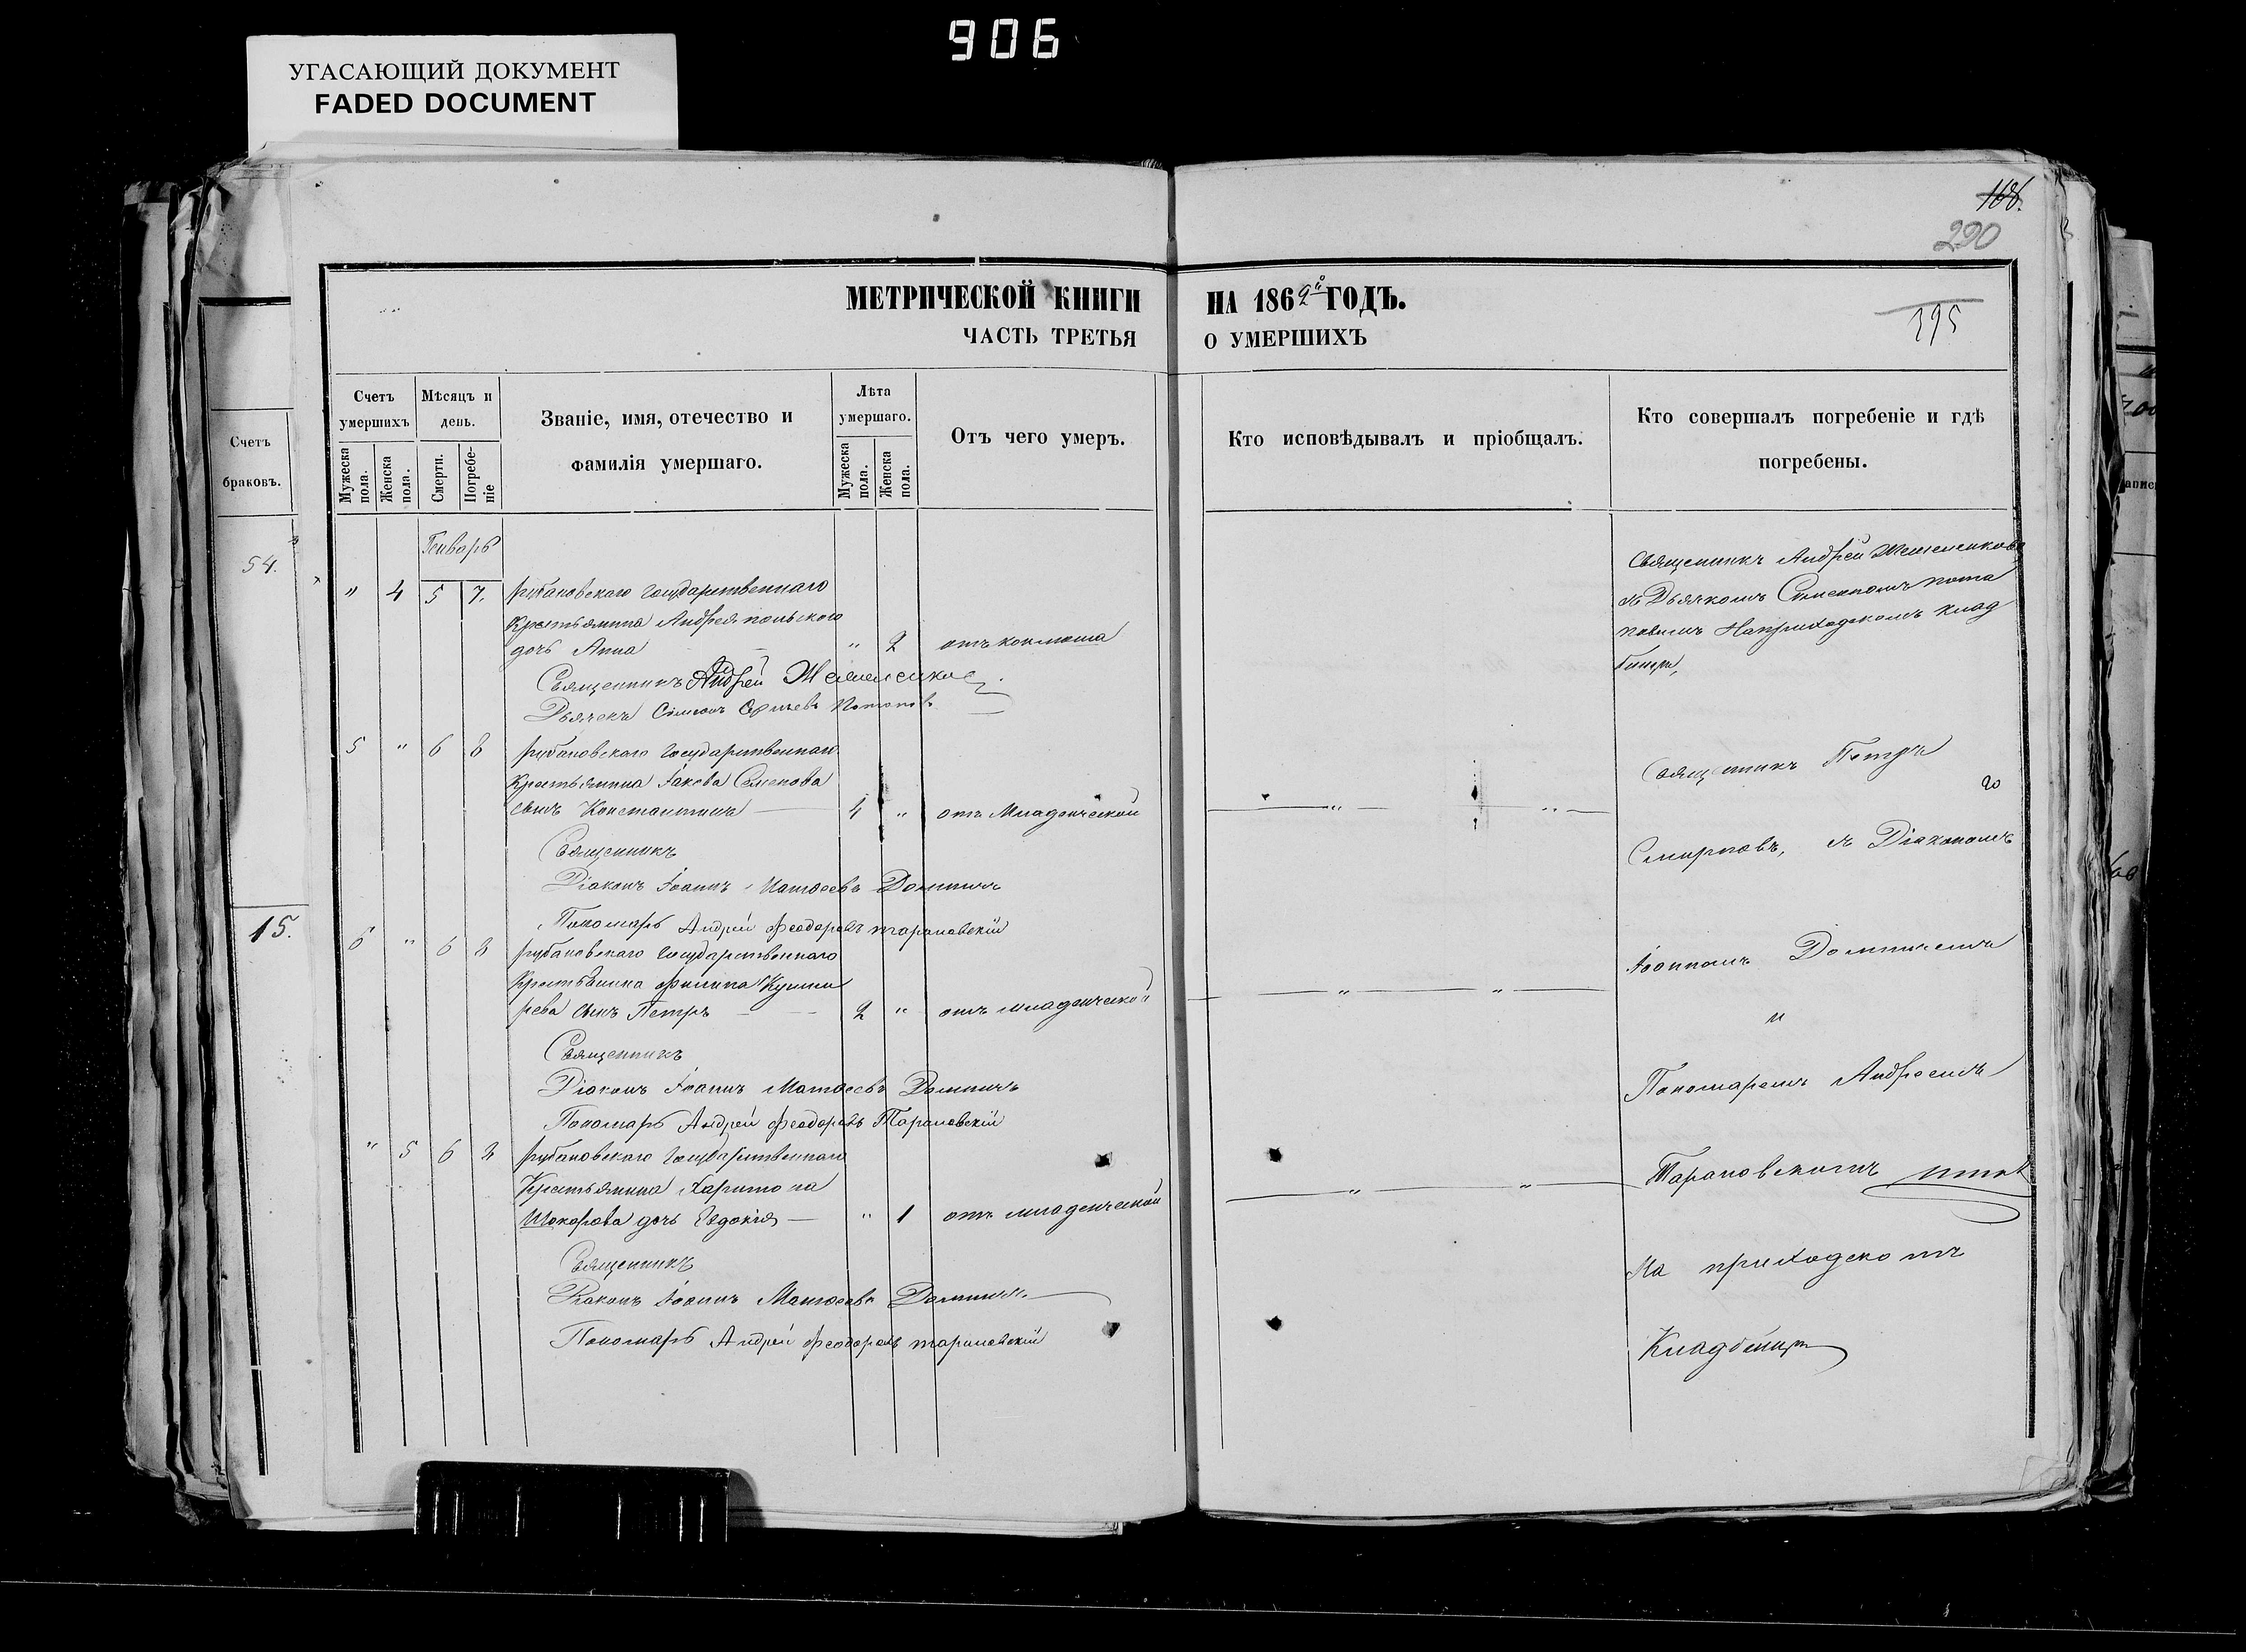 906
УГАСАЮЩИЙ ДОКУМЕНТ
FADED DOCUMENT
168.
290
МЕТРИЧЕСКОЙ КНИГИ НА 1862й ГОДЪ.
ЧАСТЬ ТРЕТЬЯ О УМЕРШИХЪ
395
Счетъ браковъ.
54.
15.
Счетъ умершихъ
Мужеска пола.
Женска пола.
Мѣсяцъ и день.
Смерти.
Погребе-ніе
Званіе, имя, отечество и
фамилія умершаго.
Лѣта умершаго.
Мужеска пола.
Женска пола.
Отъ чего умеръ.
Кто исповѣдывалъ и пріобщалъ.
Кто совершалъ погребеніе и гдѣ
погребены.
Генварь
" 4 5 7. рубановскаго Государственнаго
Крестьянина Андрея польского
дочь Анна " 2 отъ коклюша
Священникъ Андрей
Дьячекъ Симеонъ Потаповъ
5 " 6 8 рубановскаго Государственнаго
Крестьянина Іакова Семенова
сынъ Константинъ — 4 " отъ Младенческой
Священникъ
Діаконъ Іоаннъ Матѳеевъ
Пономарь Андрей Феодоровъ тарановскій
6 " 6 8 рубановскаго Государственнаго
Крестьянина Филипа Кушни
рева сынъ Петръ — — 2 " отъ младенческой
Священникъ
Діаконъ Іоаннъ Матѳеевъ
Пономарь Андрей Феодоровъ Тарановскій
" 5 6 8 рубановскаго Государственнаго
Крестьянина Харитона
Шокарова дочь Евдокія — " 1 отъ младенческой
Священникъ
Діаконъ Іоаннъ Матѳеевъ
Пономарь Андрей Феодоровъ тарановскій
Священникъ Андрей
съ Дьячкомъ Симеономъ пота
повымъ На приходскомъ клад
бищѣ,
Священникъ Петръ
Смирновъ, съ Діакономъ
Іоанномъ
и
Пономаремъ Андреемъ
Тарановскимъ
На приходскомъ
Кладбищѣ